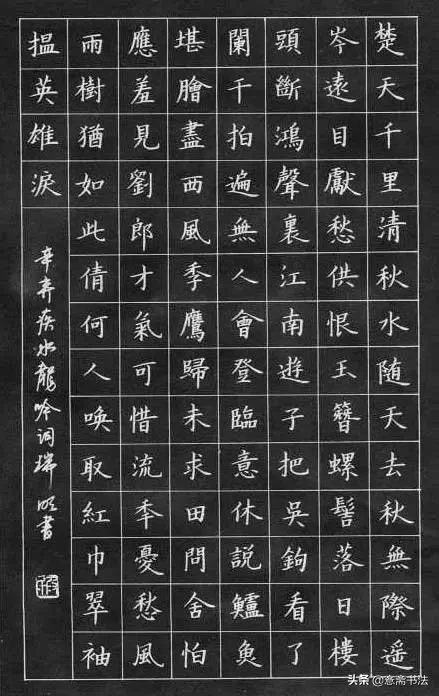 楚天千里清秋水随天去秋無際遥
岑遠目獻愁供恨玉簪螺髻落日樓
頭斷鴻聲裏江南遊子把吳鉤看了
闌干拍遍無人會登臨意休說鱸魚
堪膾盡西風季鷹歸未求田問舍怕
應羞見劉郎才氣可惜流秊憂愁風
雨樹猶如此倩何人喚取紅巾翠袖
揾英雄淚
辛弃疾水龍吟词瑞明書
头条 @意斋书法